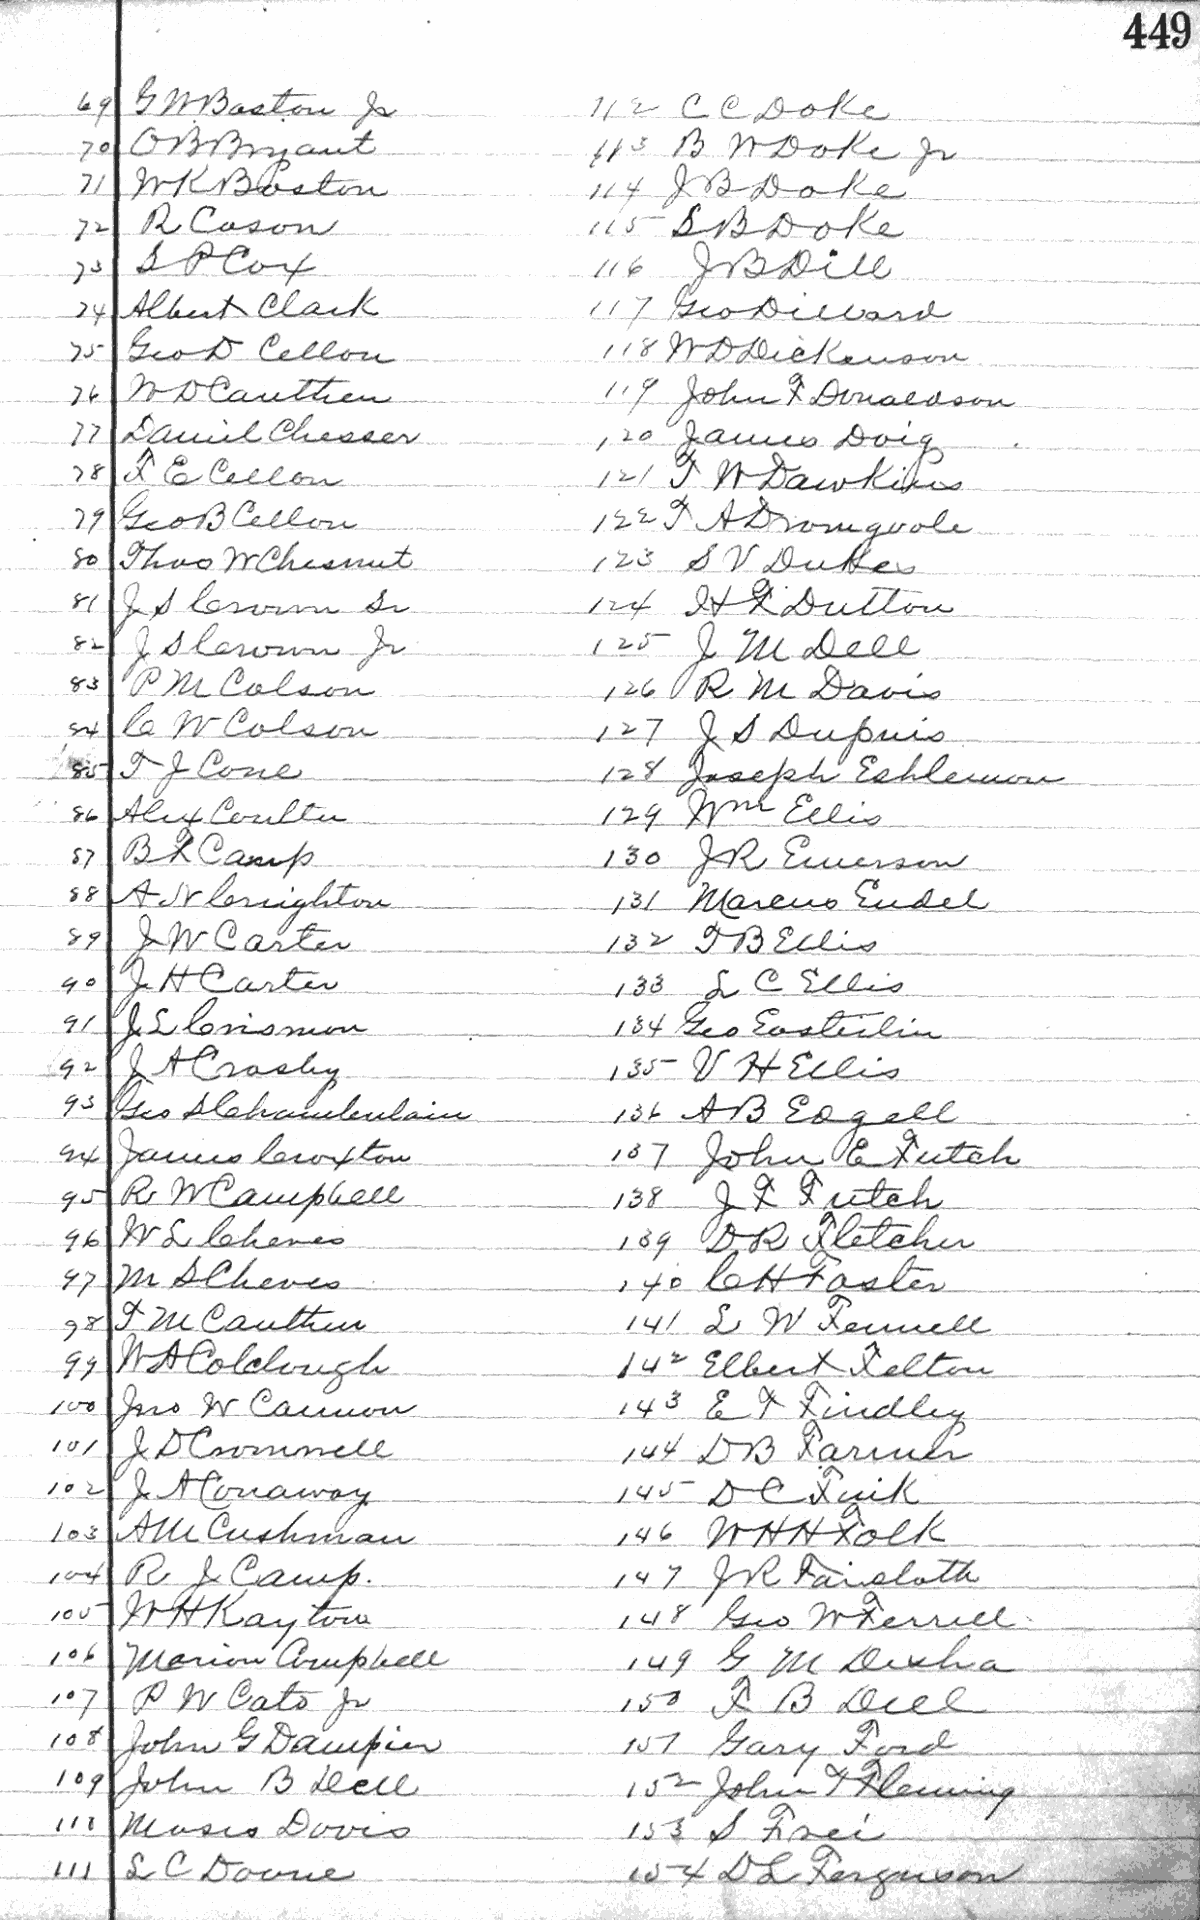 449
69 G W Baston Jr
70 O B Bryant
71 W K Boston
72 R Cason
73 S P Cox
74 Albert Clark
75 Geo D Cellon
76 W D Cauthen
77 Daniel Chesser
78 F E Cellon
79 Geo B Cellon
80 Thos W Chesnut
81 J S Crown Sr
82 J S Crown Jr
83 P M Colson
84 C W Colson
85 T J Cone
86 Alex Coulter
87 B F Camp
88 A N Creighton
89 J W Carter
90 J H Carter
91 J L Crisman
92 J A Crosby
93 Geo S Chamberlain
94 James Croxton
95 R W Campbell
96 W L Cheves
97 M S Cheves
98 F M Cauthen
99 W A Colclough
100 Jno W Cannon
101 J D Cromwell
102 J A Conaway
103 A M Cushman
104 R J Camp.
105 W H Kayton
106 Marion Campbell
107 P W Cato Jr
108 John G Dampier
109 John B Dell
110 Moses Davis
111 L C Downe
112 C C Doke
113 B W Doke Jr
114 J B Doke
115 S B Doke
116 J B Dill
117 Geo Dillard
118 W D Dickenson
119 John F Donaldson
120 James Doig
121 T W Dawkins
122 T A Dromgoole
123 S V Dukes
124 H F Dutton
125 J M Dell
126 R M Davis
127 J S Dupuis
128 Joseph Eshleman
129 Wm Ellis
130 J R Emerson
131 Marcus Endel
132 T B Ellis
133 L C Ellis
134 Geo Easterlin
135 V H Ellis
136 A B Edgell
137 John E Futch
138 J F Futch
139 D R Fletcher
140 C H Foster
141 L W Fennell
142 Elbert Felton
143 E F Findley
144 D B Farmer
145 D C Fink
146 W H H Folk
147 J R Faircloth
148 Geo W Ferrell
149 G M Desha
150 F B Dell
151 Gary Ford
152 John F Fleming
153 S Frei
154 D L Ferguson